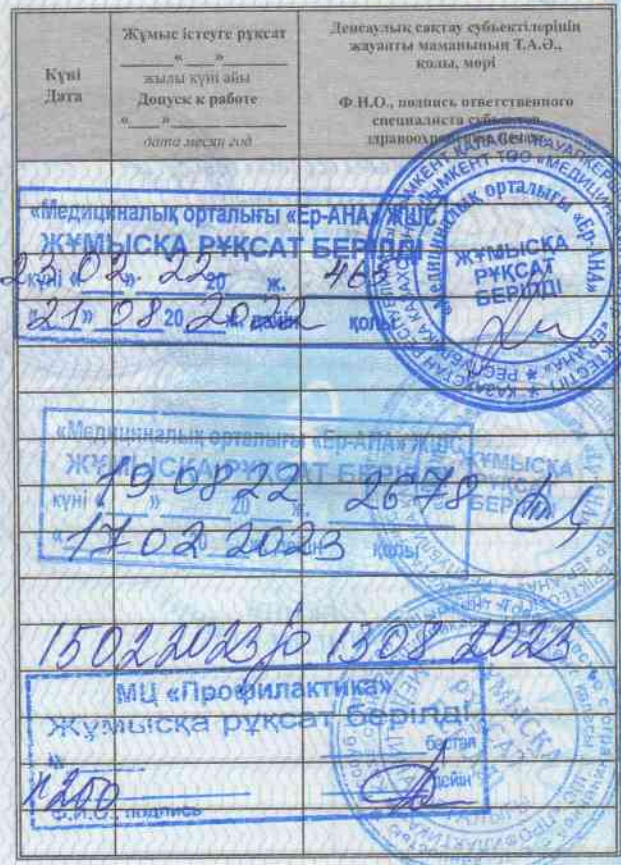 Күні
Дата
Жұмыс істеуге рұқсат
«___»
жылы күні айы
Допуск к работе
«___»
дата месяц год
Денсаулық сақтау субъектілерінің
жауапты маманының Т.А.Ә.,
қолы, мөрі
Ф.И.О., подпись ответственного
специалиста субъектов
здравоохранения
«Медициналық орталығы «Ер-АНА» ЖШС
ЖҰМЫСҚА РҰҚСАТ БЕРІЛДІ
күні «23» 02. 22 20 ж. 465
«21» 08 20 2022 ж. дейін қолы
«Медициналық орталығы «Ер-АНА»
ЖҰМЫСҚА
РҰҚСАТ
БЕРІЛДІ
«Медициналық орталығы «Ер-АНА» ЖШС
ЖҰМЫСҚА РҰҚСАТ БЕРІЛДІ
күні «19» 08 22 20 ж. 2678
«17» 02 20 2023 дейін қолы
ЖҰМЫСҚА
РҰҚСАТ
БЕРІЛДІ
15022023 13082023
МЦ «Профилактика»
Жұмысқа рұқсат берілді
бастап
№ 1200 дейін
Ф.И.О., подпись
ЖҰМЫСҚА
РҰҚСАТ